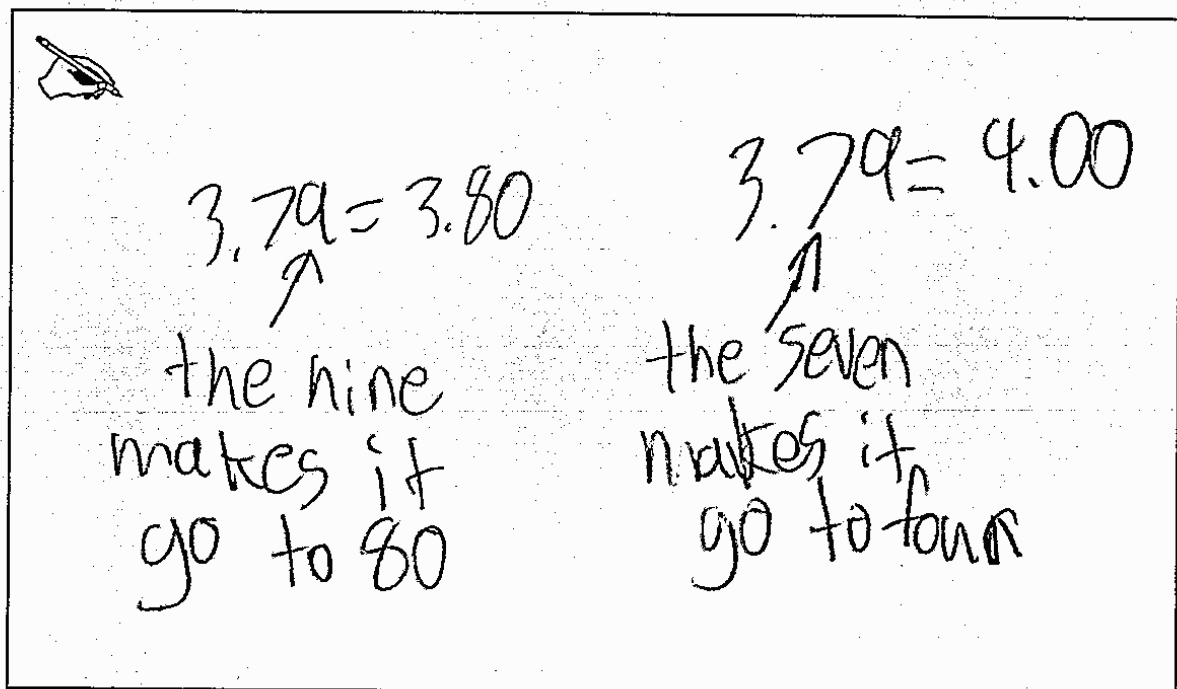 3.79 = 3.80
the nine
makes it
go to 80
3.79 = 4.00
the seven
makes it
go to four